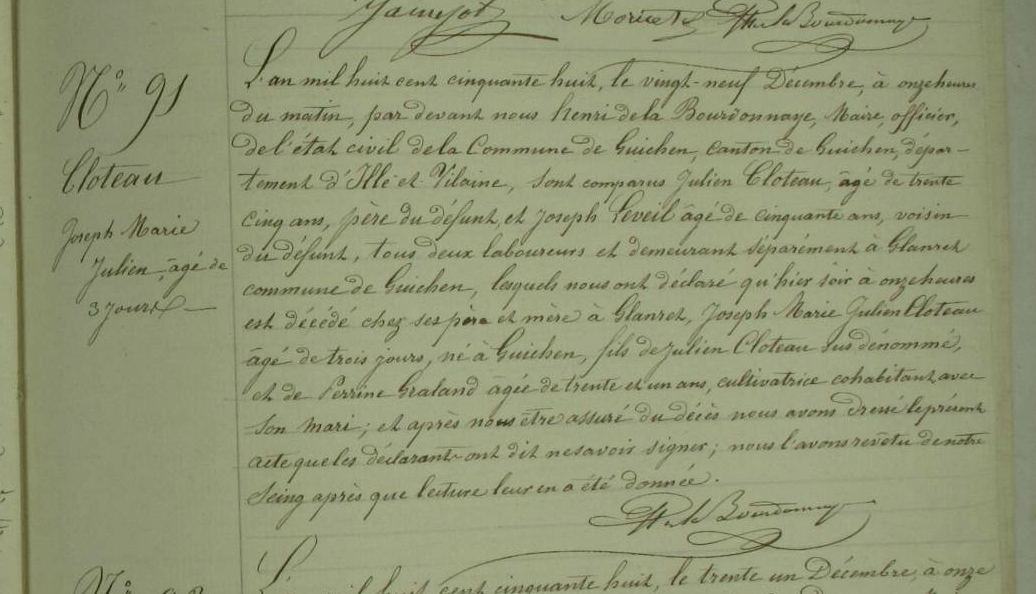 Jamejot Moricet H de la Bourdonnaye
N° 91
Cloteau
Joseph Marie
Julien, âgé de
3 jours
L'an mil huit cent cinquante huit, le vingt-neuf Décembre, à onze heures
du matin, par devant nous henri de la Bourdonnaye, Maire, officier,
de l'état civil de la Commune de Guichen, canton de Guichen, dépar-
tement d'Ille et Vilaine, sont comparus Julien Cloteau, âgé de trente
cinq ans, père du défunt, et Joseph Leveil âgé de cinquante ans, voisin
du défunt, tous deux laboureurs et demeurant séparément à Glanret
commune de Guichen, lesquels nous ont déclaré qu'hier soir à onze heures
est décédé chez ses père et mère à Glanret, Joseph Marie Julien Cloteau
âgé de trois jours, né à Guichen, fils de Julien Cloteau sus dénommé,
et de Perrine Graland âgée de trente et un ans, cultivatrice cohabitant avec
son mari; et après nous être assuré du décès nous avons dressé le présent
acte que les déclarant ont dit ne savoir signer; nous l'avons revêtu de notre
seing après que lecture leur en a été donnée.
H de la Bourdonnaye
L' mil huit cent cinquante huit, le trente un Décembre, à onze
N°